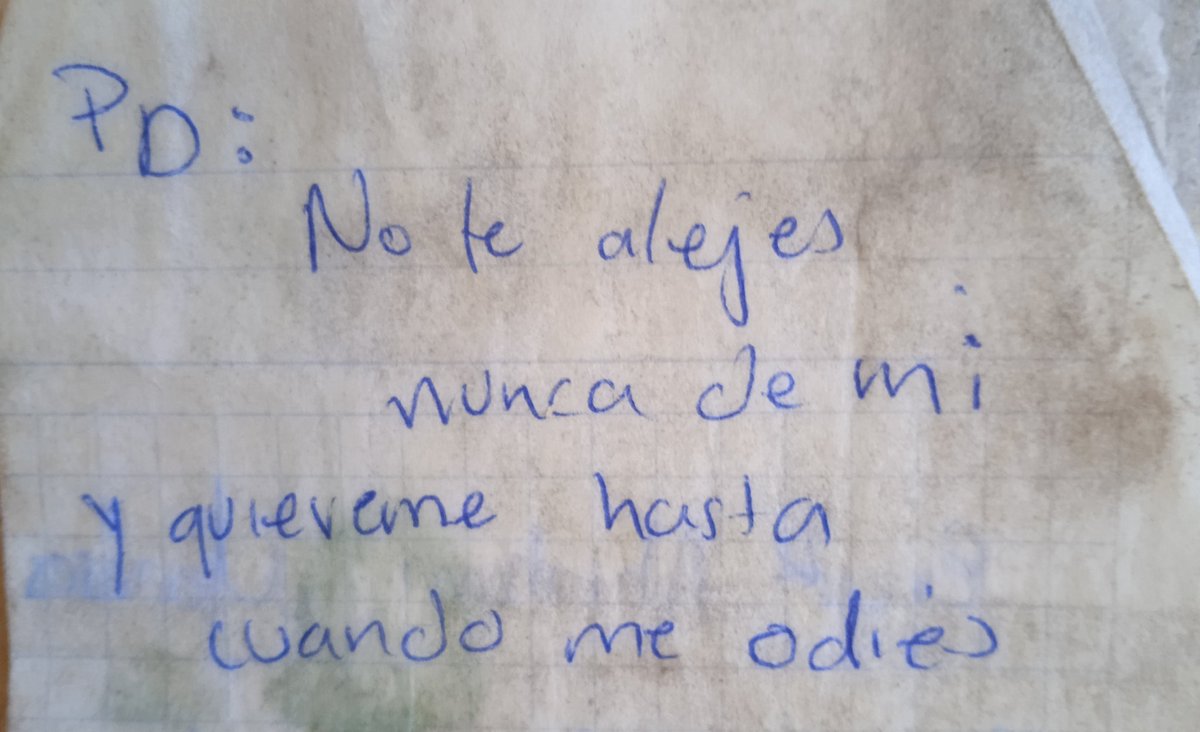 PD:
No te alejes
nunca de mi
y quiereme hasta
cuando me odies